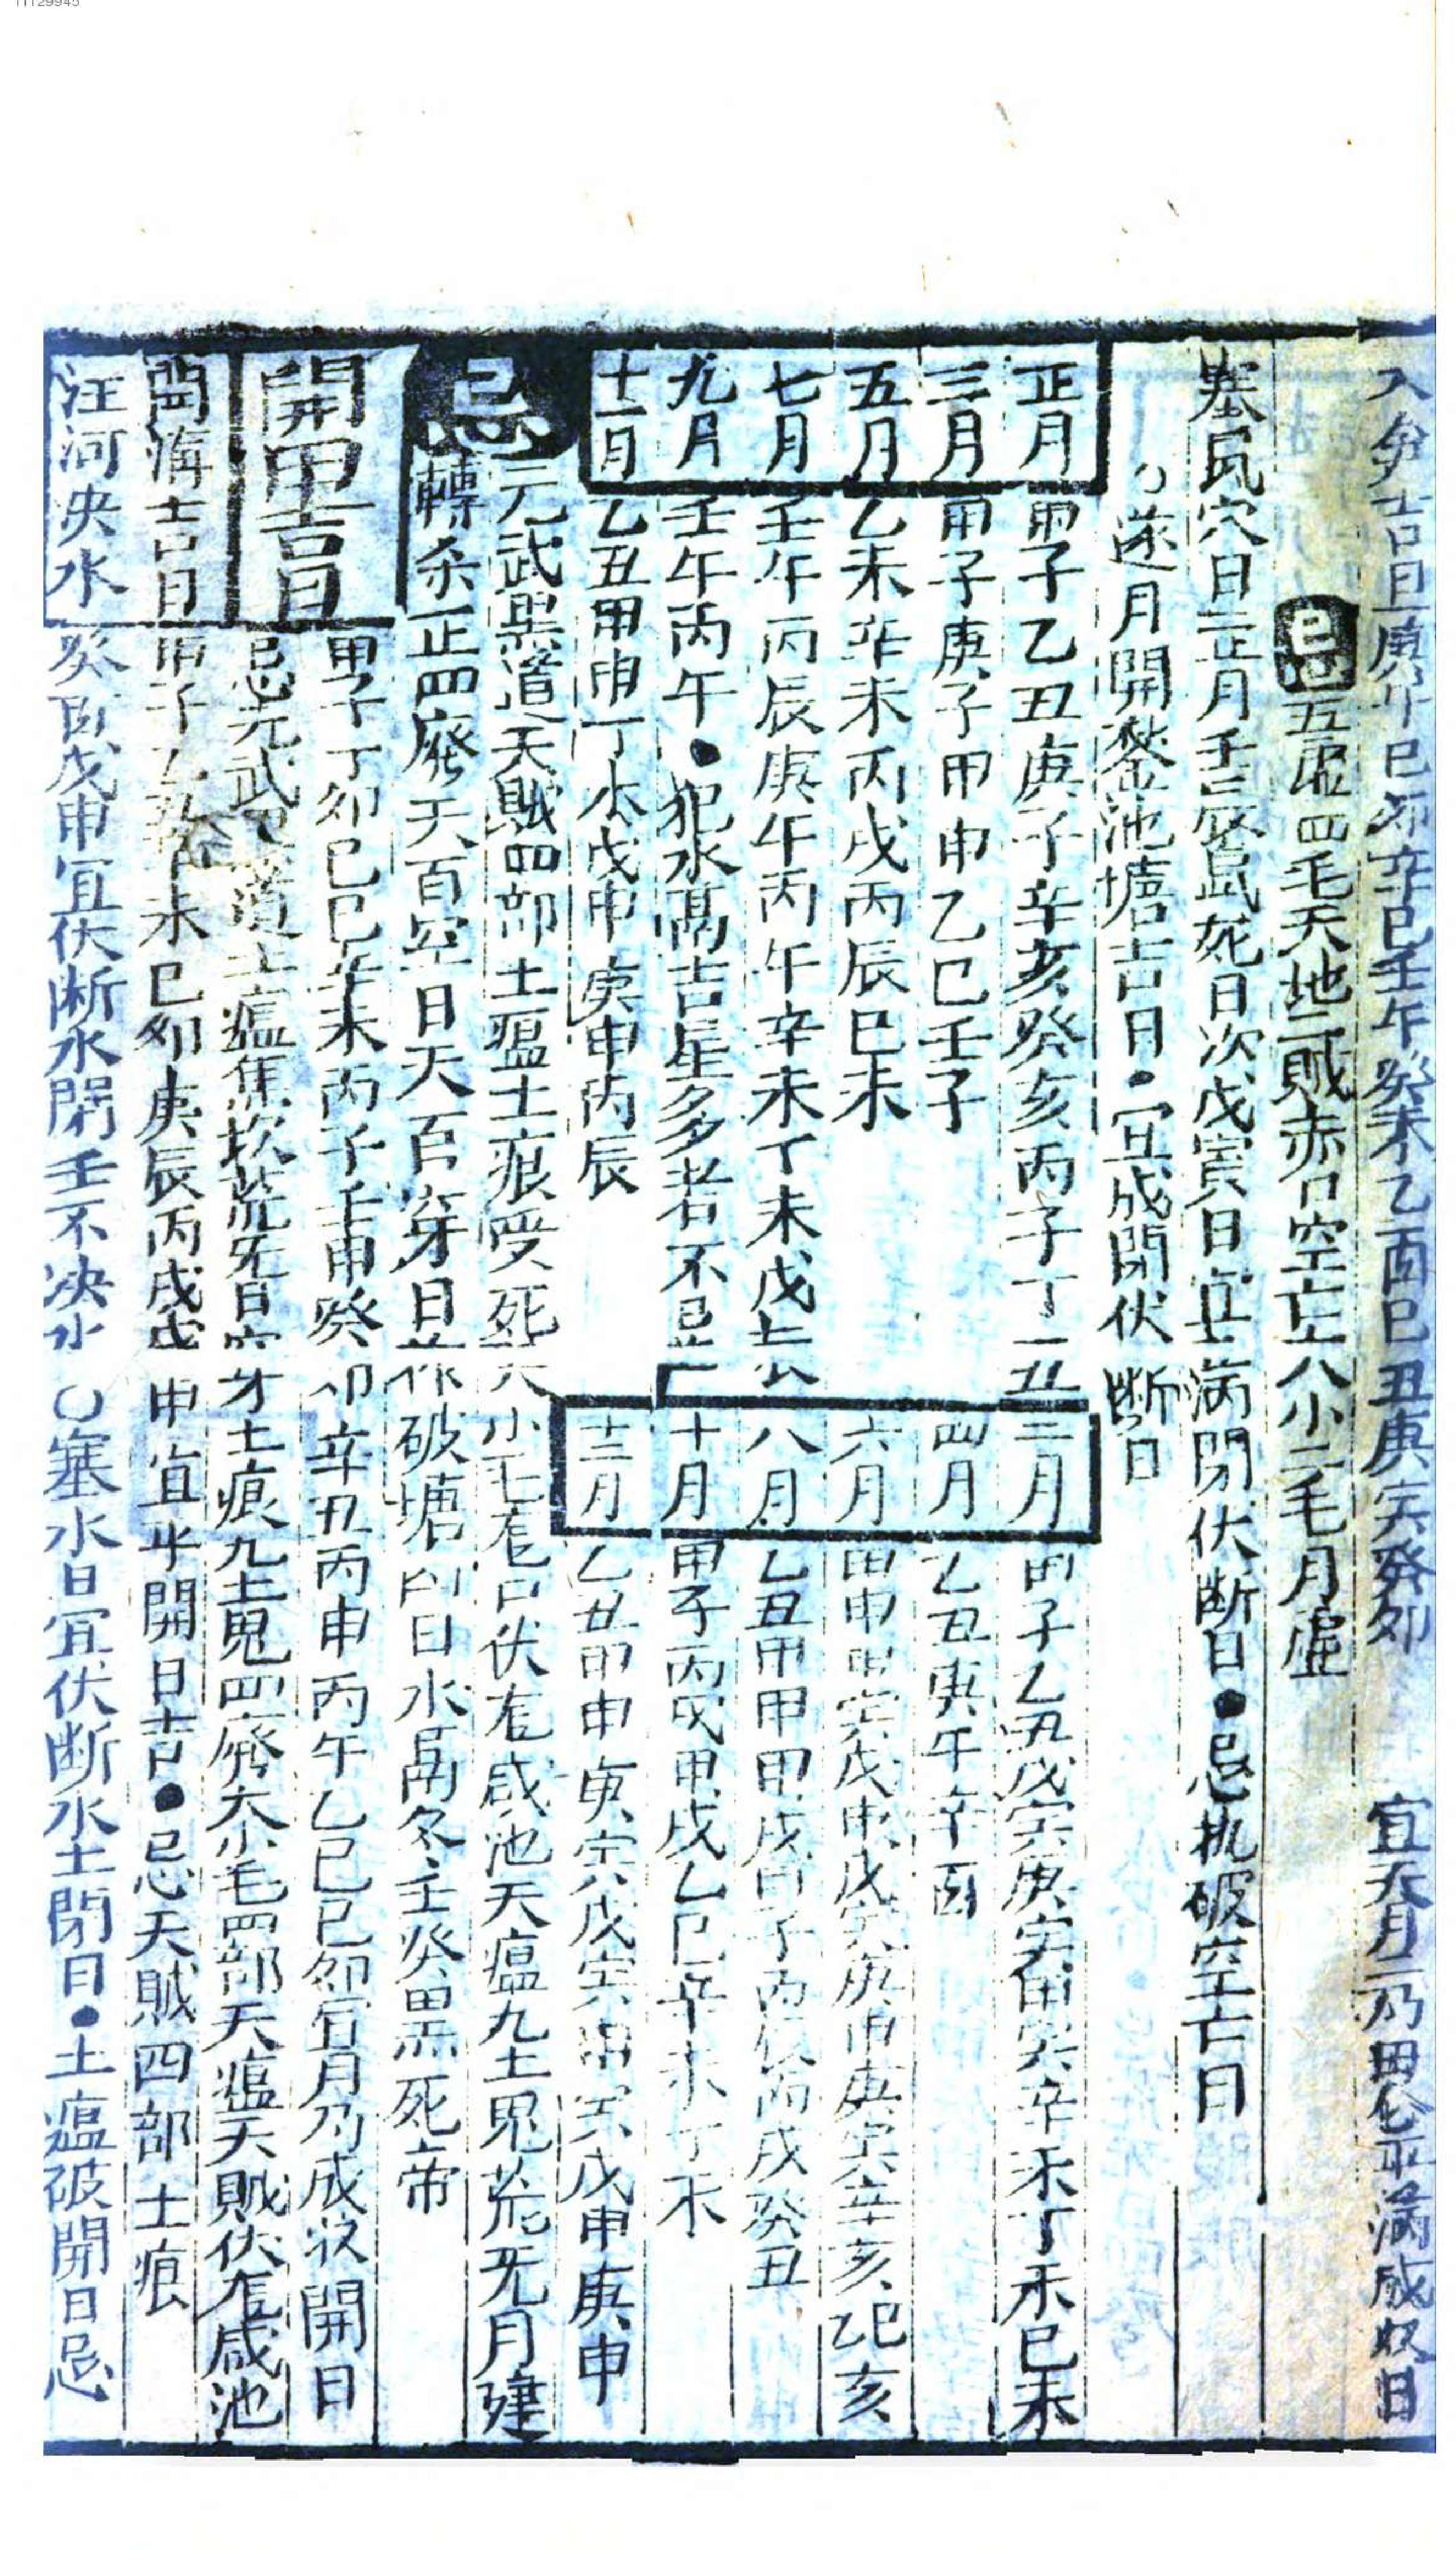 入倉吉日 庚午巳卯辛巳壬午癸未乙酉巳丑庚寅癸卯 宜天月二乃田仓平满成收日
忌 五虚四毛天地二贼赤口空亡大小二毛月虚
塞鼠穴日 正月壬辰鼠死日次戊寅日宜满闭伏断日●忌执破空亡日
逐月開鑿池塘吉日●宜成開伏断日
正月 甲子乙丑庚子辛亥癸亥丙子丁丑
二月 甲子乙丑戊寅庚寅甲寅辛未丁未巳未
三月 甲子庚子甲申乙巳壬子
四月 乙丑庚午辛酉
五月 乙未辛未丙戌丙辰巳未
六月 甲申甲寅戊申戊寅庚申庚寅辛亥乙巳亥
七月 壬午丙辰庚午丙午辛未丁未戊
八月 乙丑甲申甲戌甲子丙戌癸丑
九月 壬午丙午●犯水鬲吉星多者不忌
十月 甲子丙戌甲戌乙巳辛未丁未
十一月 乙丑甲申丁未戊申庚申丙辰
十二月 乙丑甲申庚寅戊寅戊申庚申
忌 元武黑道天贼四部土瘟土痕受死大小毛 伏 咸池天瘟九土鬼荒芜月建
轉杀正四廢天百空日天百穿日 作破塘 日水鬲冬壬癸黑死帝
開田吉日 甲子丁卯巳巳辛未丙子壬申癸卯辛丑丙申丙午乙巳巳卯宜月乃成收開日
忌元武 道土瘟焦坎荒芜 土痕九土鬼四廢大小毛四部天瘟天贼伏 咸池
開溝吉日 甲子乙丑辛未巳卯庚辰丙戌戊申宜平開日吉●忌天贼四部土痕
汪河决水 癸酉戊申宜伏断水閉壬不决水 〇塞水日宜伏断水土閉日●土瘟破開日忌